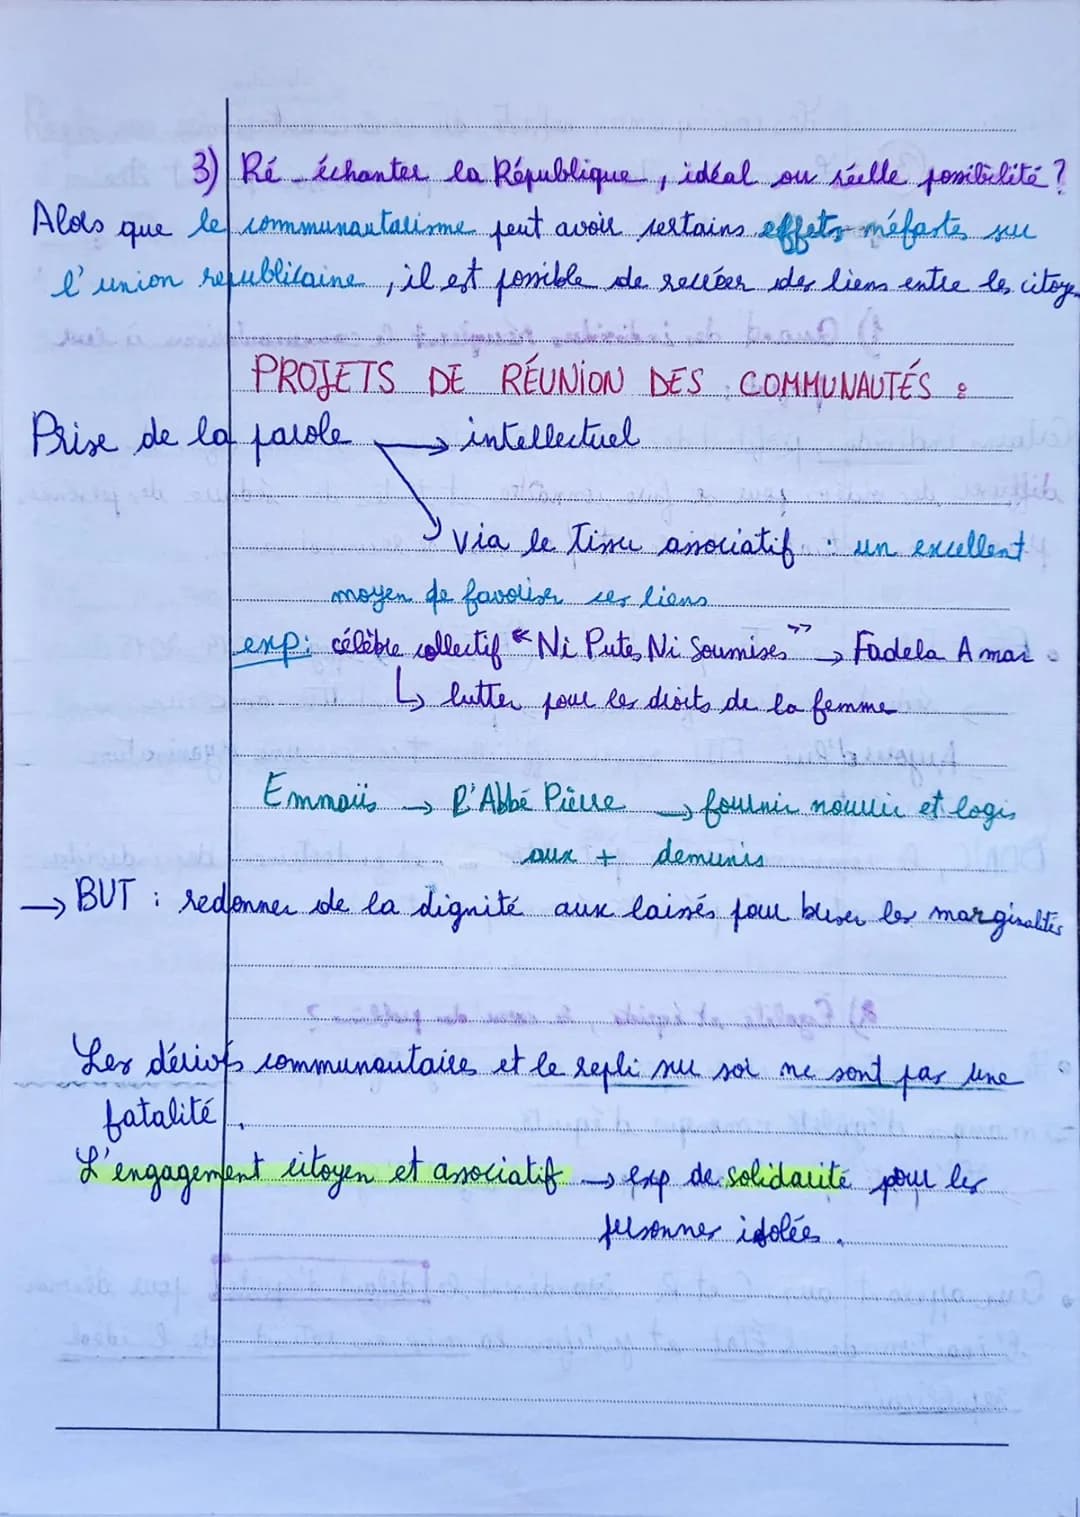 3) Ré-échanter la République, idéal ou réelle possibilité ?
Alors que le communautarisme peut avoir certains effets méfastes sur
l'union republicaine, il est possible de recréer des liens entre les citoyen
PROJETS DE RÉUNION DES COMMUNAUTÉS :
Prise de la parole → intellectuel
↘ via le Tissu associatif : un excellent
moyen de favoriser ses liens
exp : célèbre collectif « Ni Putes Ni Soumises » → Fadela Amar.
↳ lutter pour les droits de la femme
Emmaüs → L'Abbé Pierre → fournir nourrir et logis
aux + demunis
→ BUT : redonner de la dignité aux laissés pour briser les marginalités
Les dérives communautaires et le repli sur soi ne sont pas une
fatalité.
L'engagement citoyen et associatif → exp de solidarité pour les
personnes isolées.